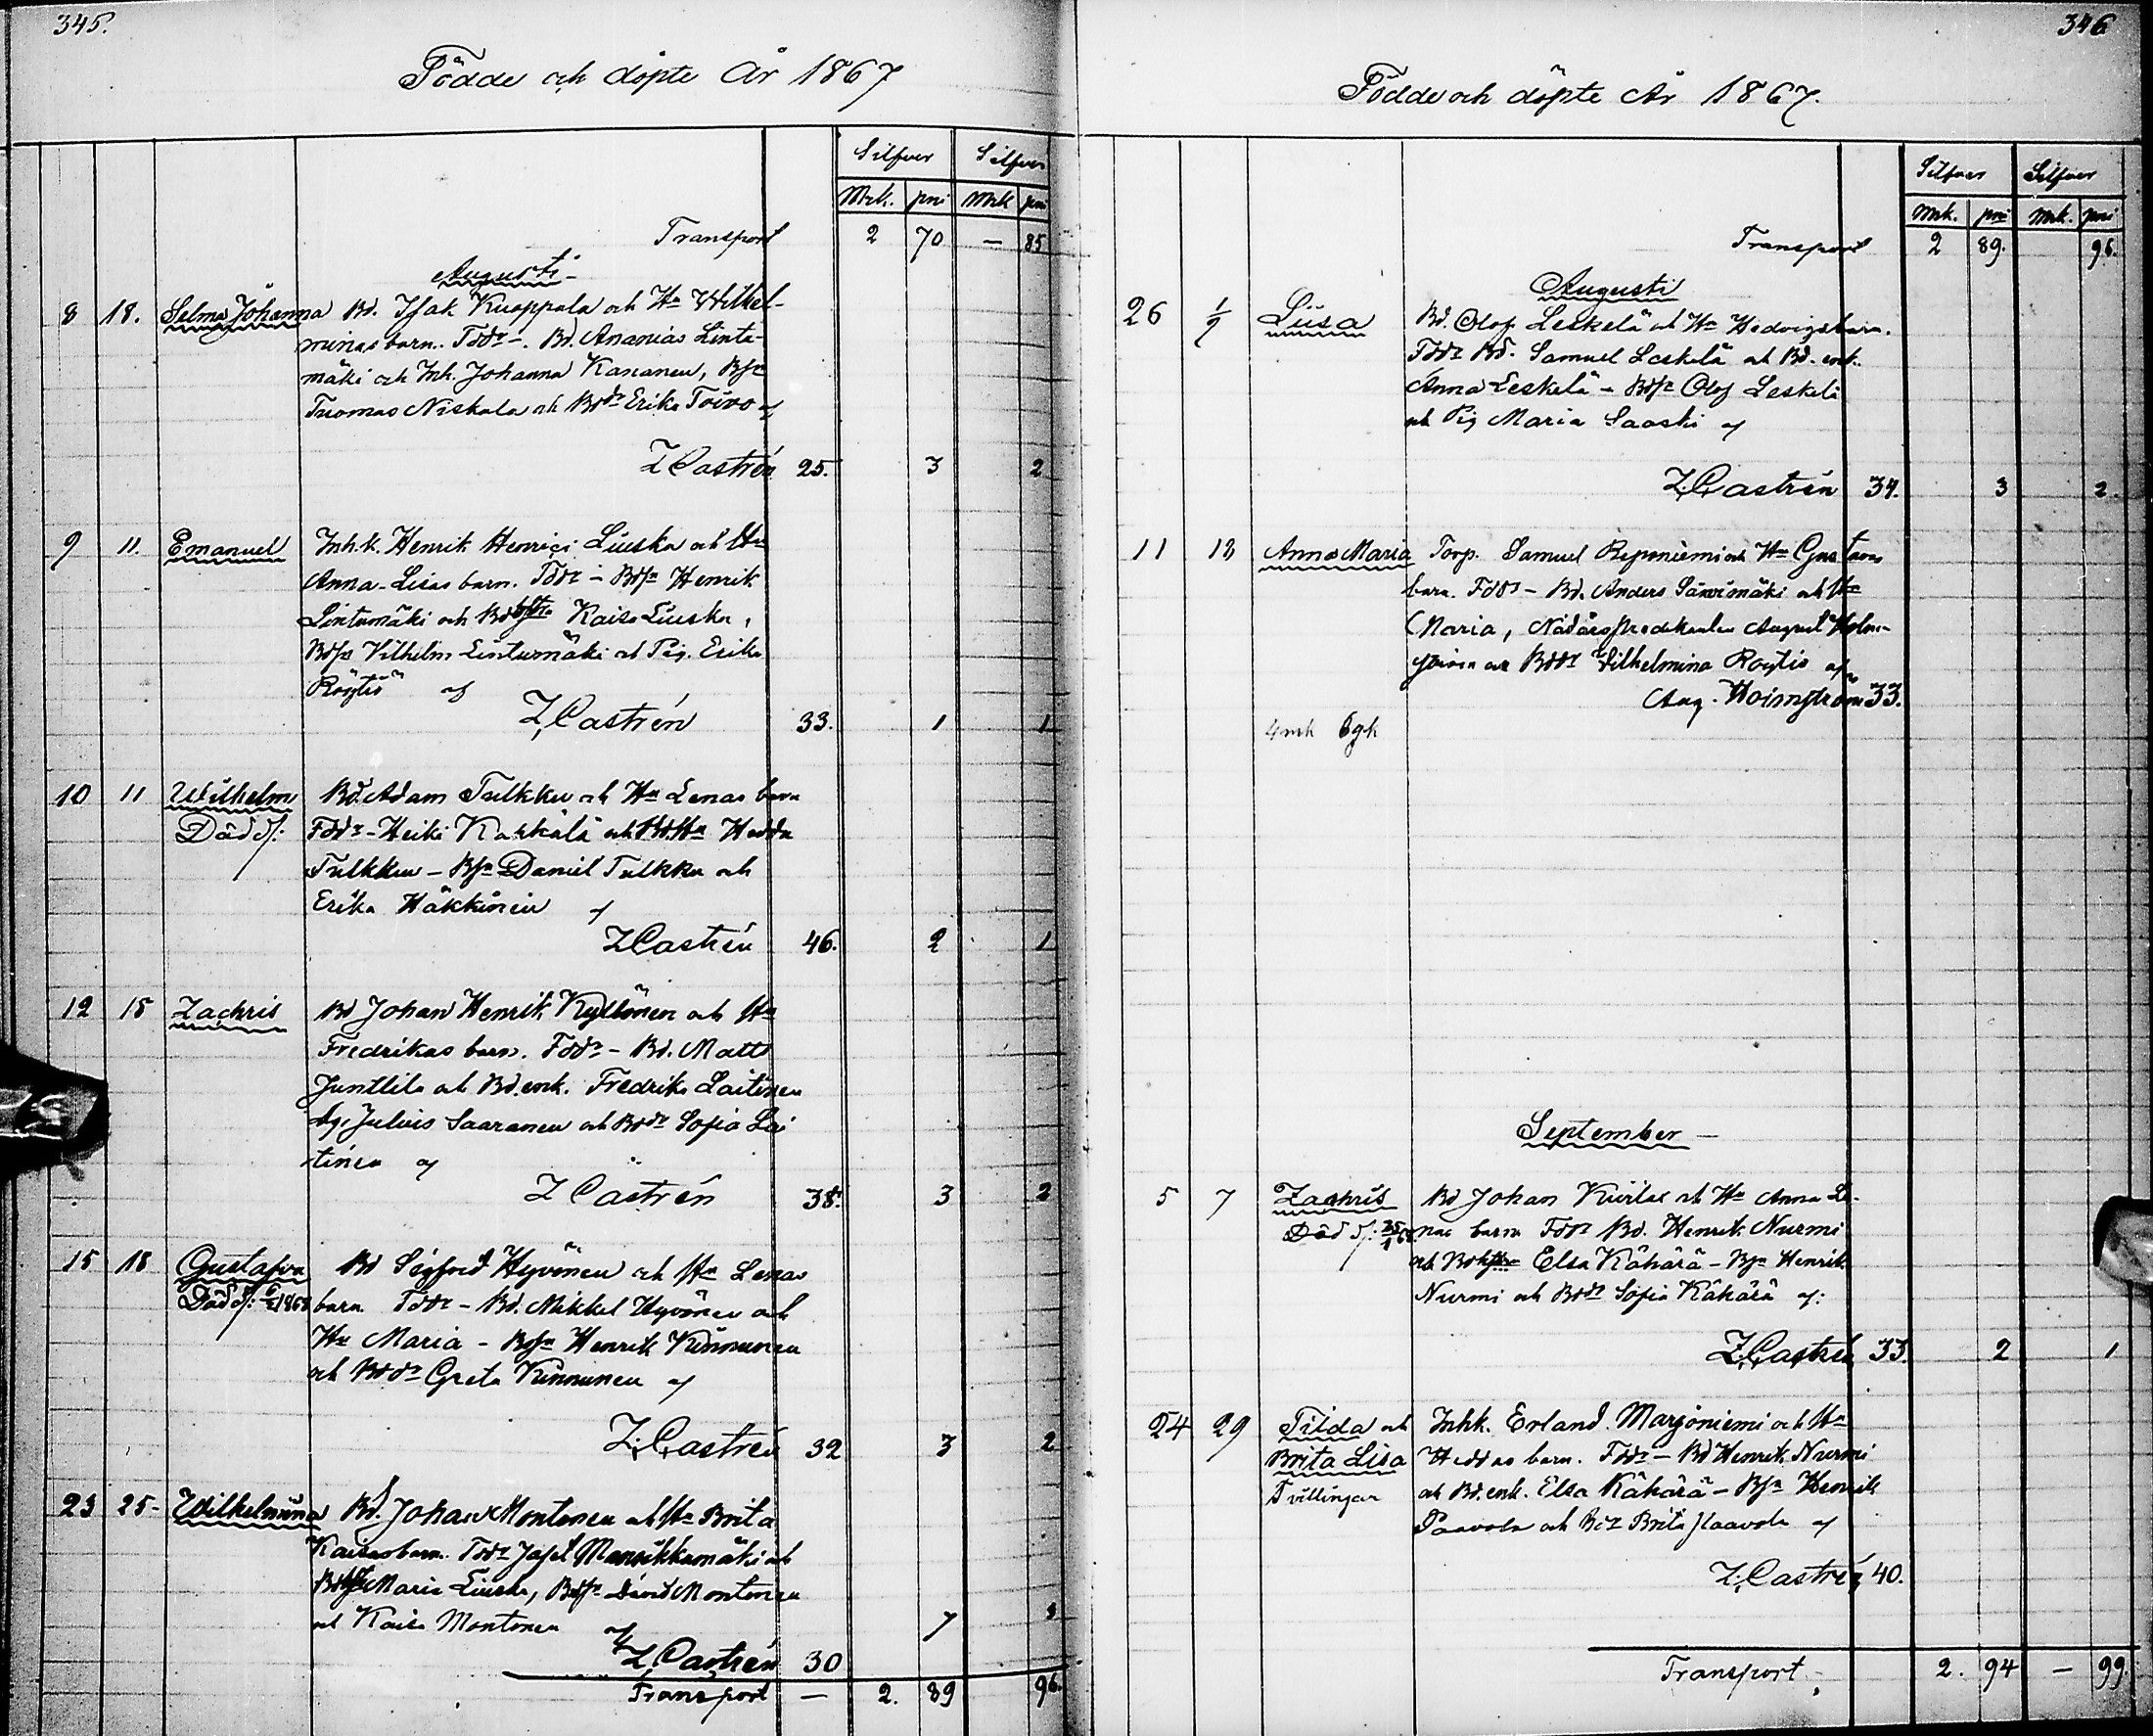 345.
Födde och döpte År 1867
Silfver Silfver
Mrk. pni Mrk pni
Transport 2 70 — 85
Augusti
8 18. Selma Johanna Bd. Isak Kuoppala och Hu Wilhel-
minas barn. Fddr -. Bd. Ananias Linta-
mäki och Inh. Johanna Kananen, Bsn
Tuomas Niskala och Bddr Erika Toivo af
Z Castrén 25. 3 2
9 11. Emanuel Inh.k. Henrik Henrici Liuska och Hu
Anna-Lisas barn. Fddr - Bdsn Henrik
Lintumäki och Kaisa Liuska,
Bdsn Vilhelm Lintumäki och Pig. Erika
Röytiö af
Z Castrén 33. 1 1
10 11 Wilhelm Bd. Adam Tulkku och Hu Lenas barn
Död Fddr - Heiki Karkälä och Bd. Hu Hedda
Tulkku - Bsn Daniel Tulkku och
Erika Häkkinen af
Z Castrén 46. 2 1
12 15 Zachris Bd Johan Henrik Kyllönen och Hu
Fredrikas barn. Fddr - Bd. Matts
Junttila och Bd.enk. Fredrika Laitinen
Julius Saaranen och Bddr Sofia Lai
tinen af
Z Castrén 38. 3 2
15 18 Gustafva Bd Sigfrid Hyvönen och Hu Lenas
Död 1868 barn Fddr - Bd. Mikkel Hyvönen och
Hu Maria - Bdsn Henrik Kinnunen
och Bddr Greta Kinnunen af
Z. Castrén 32 3 2
23 25- Wilhelmina Bd. Johan Montonen och Hu Brita
Kaisas barn. Fddr Josef Mansikkamäki och
Maria Liuska, Bdsn David Montonen
och Kaisa Montonen af 7 3
Z Castrén 30
Transport — 2. 89 96.
346
Födde och döpte År 1867.
Silfver Silfver
Mrk. pni Mrk. pni
Transport 2 89. 96.
Augusti
26 1/9 Liisa Bd. Olof Leskelä och Hu Hedvigs barn.
Fddr Bd. Samuel Leskelä och Bd. enk.
Anna Leskelä - Bdsn Olof Leskelä
och Pig Maria Saaski af
Z. Castrén 34. 3 2.
11 12 Anna Maria Torp. Samuel Reponiemi och Hu Gustavas
barn. Fddr - Bd. Anders Särkimäki och Hu
Maria, Nådårspredikanten August Holm-
ström och Bddr Wilhelmina Röytiö af
Aug. Holmström 33.
4 mk 6 gk
September
5 7 Zachris Bd Johan Kurtas och Hu Anna Le-
Död nas barn Fddr Bd. Henrik Nurmi
och Elsa Kähärä - Bsn Henrik
Nurmi och Bddr Sofia Kähärä af:
Z. Castrén 33. 2 1
24 29 Tilda och Inhk. Erland Marjoniemi och Hu
Brita Lisa Heddas barn. Fddr - Bd Henrik Nurmi
Tvillingar och Bd. enk. Elsa Kähärä - Bsn Henrik
Paavola och Brita Paavola af
Z. Castrén 40.
Transport 2. 94 — 99